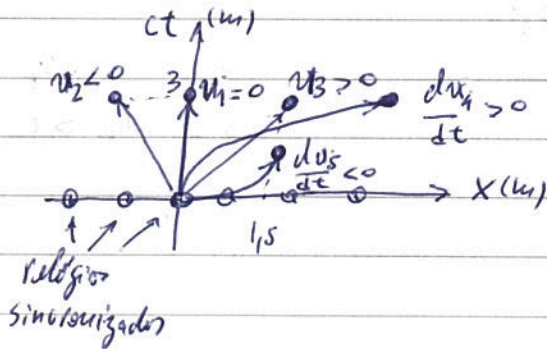 ct (m)
v₂<0 3 v₁=0 v₃>0 dv₄/dt >0
dv₅/dt <0
X(m)
1,5
relógios
sincronizados